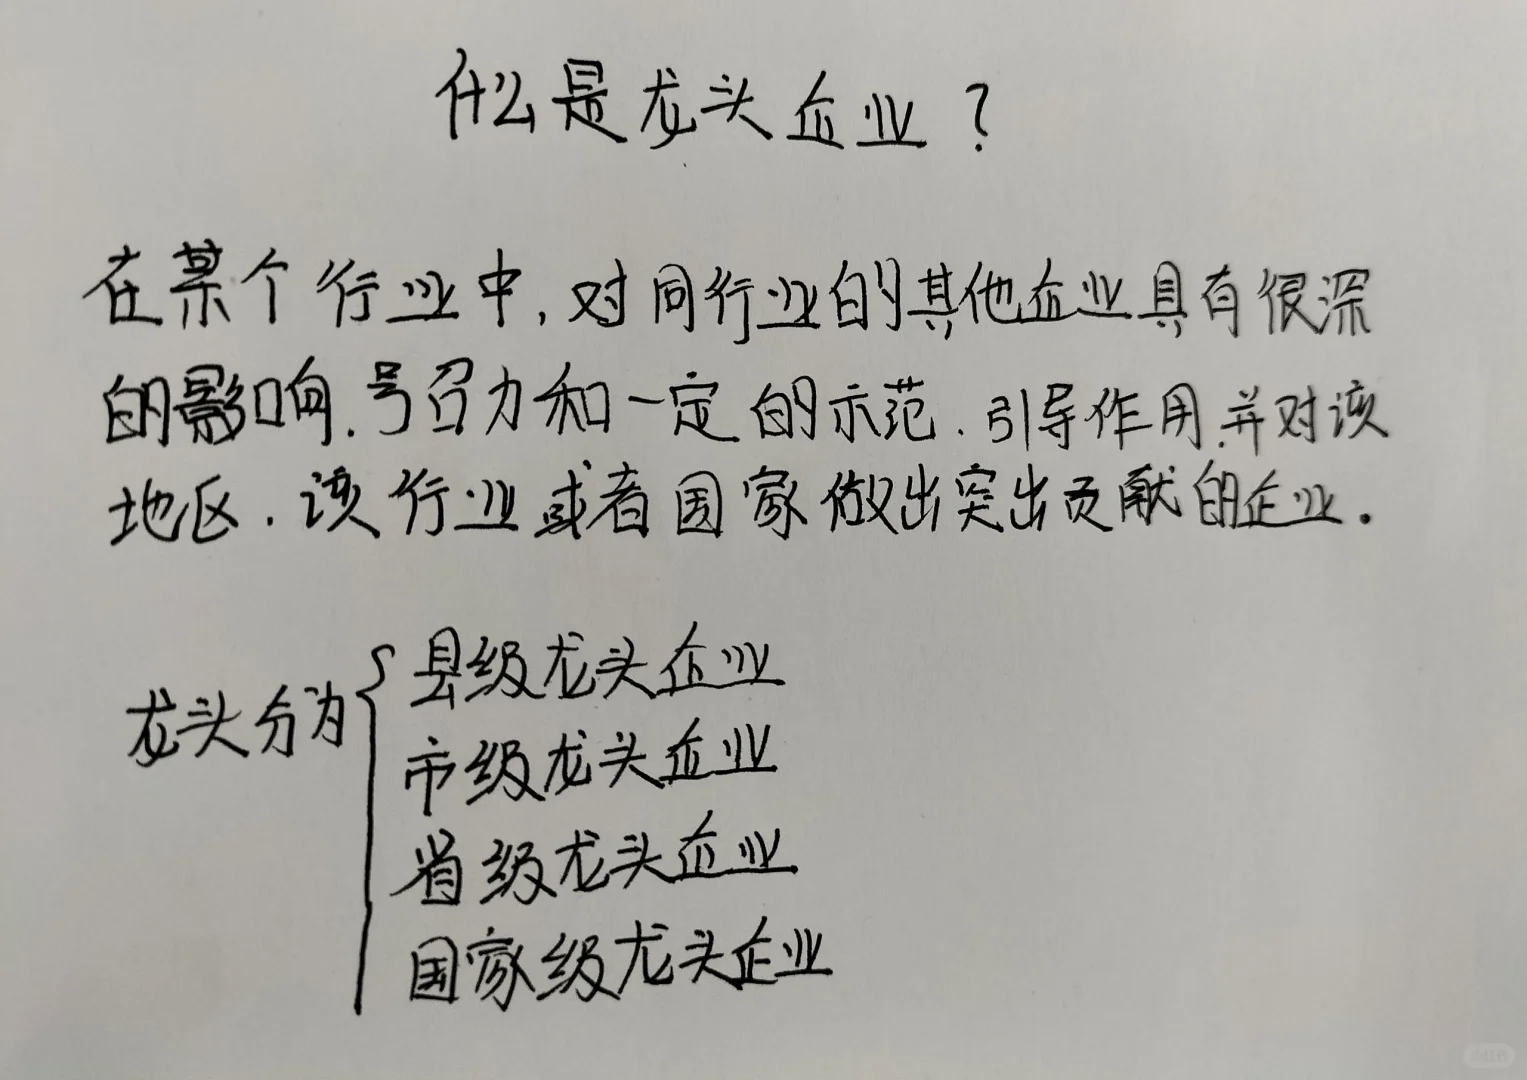 什么是龙头企业?
在某个行业中,对同行业的其他企业具有很深
的影响.号召力和一定的示范.引导作用.并对该
地区.该行业或者国家做出突出贡献的企业.
龙头分为
县级龙头企业
市级龙头企业
省级龙头企业
国家级龙头企业